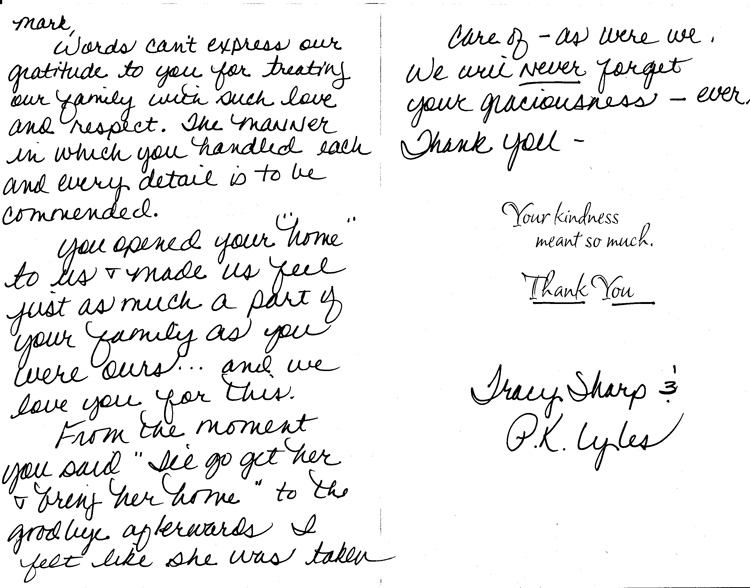 Mark,
Words can't express our
gratitude to you for treating
our family with such love
and respect. The manner
in which you handled each
and every detail is to be
commended.
You opened your "home"
to us & made us feel
just as much a part of
your family as you
were ours... and we
love you for this.
From the moment
you said "I'll go get her
& bring her home" to the
goodbye afterwards I
felt like she was taken
care of - as were we.
We will never forget
your graciousness - ever.
Thank you -
Your kindness
meant so much.
Thank You
Tracy Sharp &
P.K. Lyles